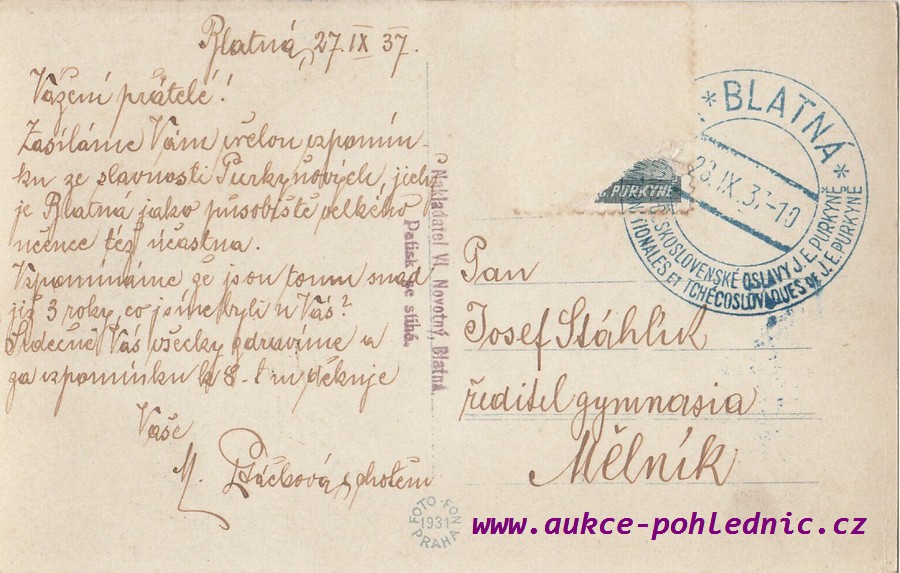 Blatná, 27.IX 37.
Vážení přátelé!
Zasíláme Vám vřelou vzpomín-
ku ze slavností Purkyňových, jichž
je Blatná jako působiště velkého
učence též účastna.
Vzpomínáme že jsou tomu snad
již 3 roky, co jsme byli u Vás?
Srdečně Vás všecky zdravíme a
za vzpomínku k 8. t m děkuje
Vaše
M. Ptáčková s chotěm
Nakladatel Vl. Novotný, Blatná.
Patisk se stíhá.
FOTO-FON
1931
PRAHA
* BLATNÁ *
28.IX.37-10
ČESKOSLOVENSKÉ OSLAVY J.E. PURKYNĚ
NATIONALES ET TCHÉCOSLOVAQUES DE J.E. PURKYNĚ
PURKYNĚ
Pan
Josef Stáhlík
ředitel gymnasia
Mělník
www.aukce-pohlednic.cz